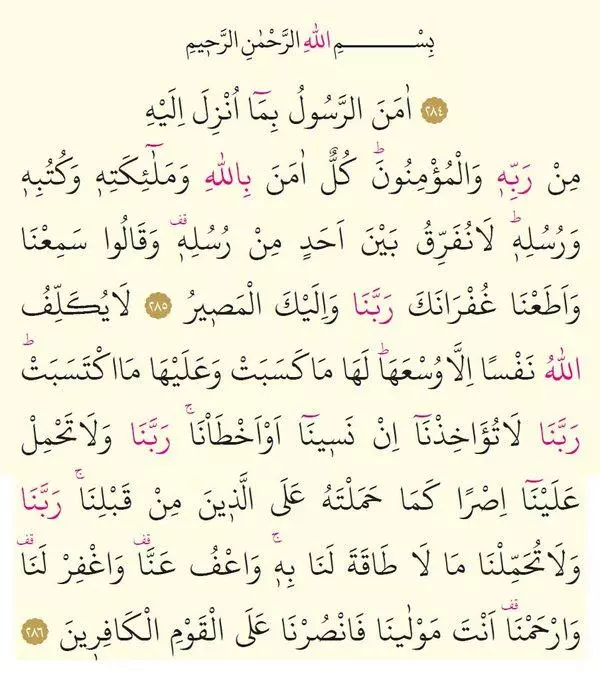 بِسْــــــــــــــمِ اللهِ الرَّحْمٰنِ الرَّحٖيمِ
﴿٢٨٤﴾ اٰمَنَ الرَّسُولُ بِمَٓا اُنْزِلَ اِلَيْهِ
مِنْ رَبِّهٖ وَالْمُؤْمِنُونَؕ كُلٌّ اٰمَنَ بِاللهِ وَمَلٰٓئِكَتِهٖ وَكُتُبِهٖ
وَرُسُلِهٖؕ لَانُفَرِّقُ بَيْنَ اَحَدٍ مِنْ رُسُلِهٖࣞ وَقَالُوا سَمِعْنَا
وَاَطَعْنَا غُفْرَانَكَ رَبَّنَا وَاِلَيْكَ الْمَصٖيرُ ﴿٢٨٥﴾ لَايُكَلِّفُ
اللهُ نَفْسًا اِلَّاوُسْعَهَاؕ لَهَا مَاكَسَبَتْ وَعَلَيْهَا مَااكْتَسَبَتْؕ
رَبَّنَا لَاتُؤَاخِذْنَٓا اِنْ نَسٖينَٓا اَوْاَخْطَاْنَاۚ رَبَّنَا وَلَاتَحْمِلْ
عَلَيْنَٓا اِصْرًا كَمَا حَمَلْتَهُ عَلَى الَّذٖينَ مِنْ قَبْلِنَاۚ رَبَّنَا
وَلَاتُحَمِّلْنَا مَا لَا طَاقَةَ لَنَا بِهٖۚ وَاعْفُ عَنَّاࣞ وَاغْفِرْ لَنَاࣞ
وَارْحَمْنَاࣞ اَنْتَ مَوْلٰينَا فَانْصُرْنَا عَلَى الْقَوْمِ الْكَافِرٖينَ ﴿٢٨٦﴾